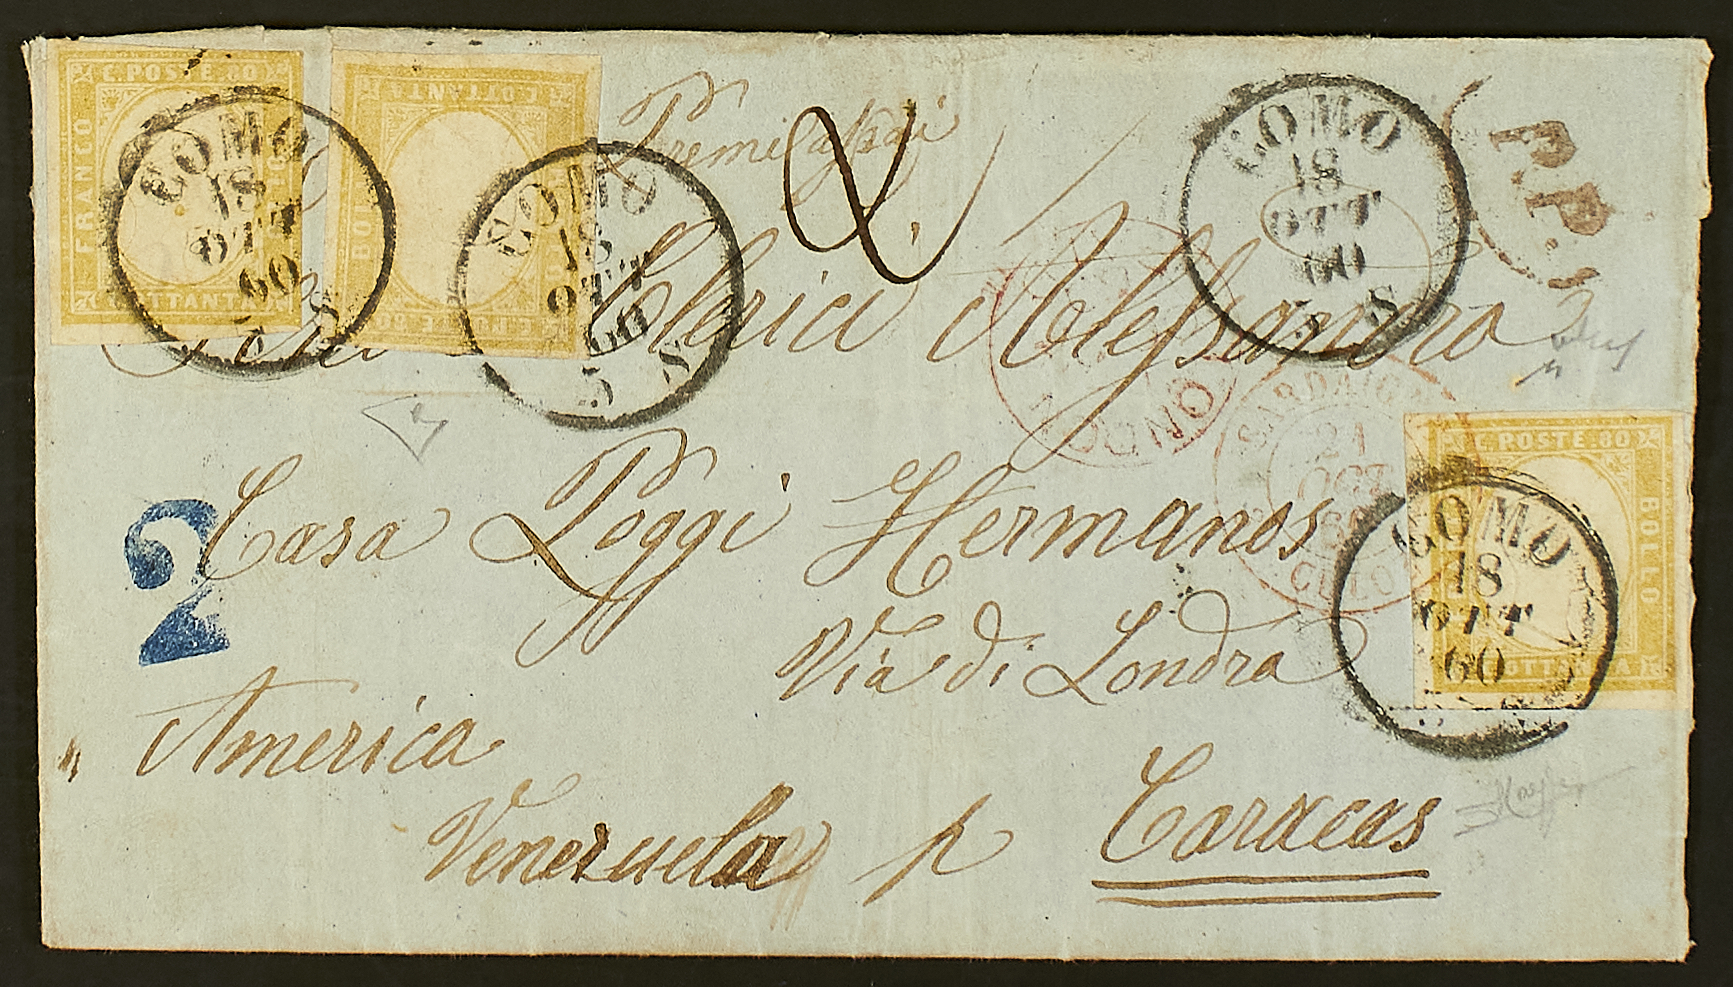 C. POSTE. 80
FRANCO
BOLLO
C. OTTANTA
COMO
18
OTT
60
5 S
C. OTTANTA
BOLLO
C. POSTE. 80
COMO
18
OTT
60
5 S
2
COMO
18
OTT
60
5 S
P.P.
Clerici Alessandro
LONDON
SARDAIGNE
21
OCT
60
Casa Poggi Hermanos
2
Via di Londra
C. POSTE. 80
BOLLO
OTTANTA
COMO
18
OTT
60
America
Venezuela p Caracas